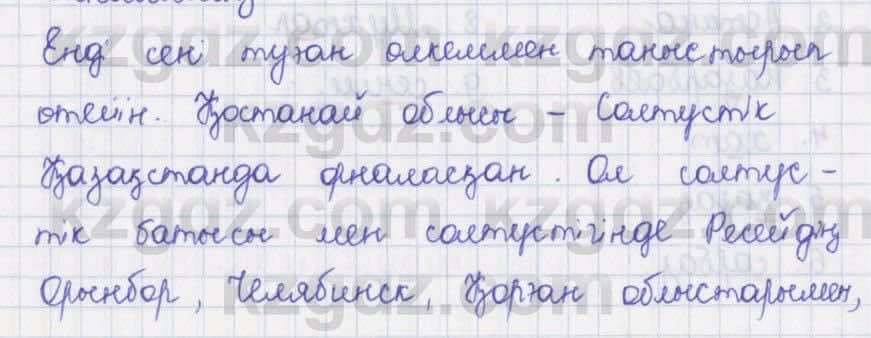 Енді сені туған өлкеммен таныстырып
өтейін. Қостанай облысы – Солтүстік
Қазақстанда орналасқан. Ол солтүс-
тік батысы мен солтүстігінде Ресейдің
Орынбор, Челябинск, Қорған облыстарымен,